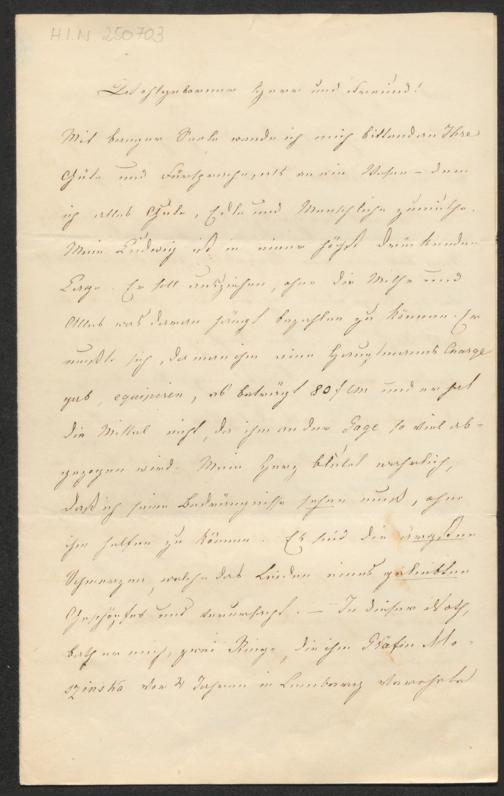 H.I.N 250703
Wohlgeborner Herr und Freund!
Mit banger Seele wende ich mich bittend an Ihre
Güte und Fürsprache, als an ein Wesen – dem
ich alles Gute, Edle und Menschliche zumuthe.
Mein Ludwig ist in einer höchst drückenden
Lage. Er soll ausziehen, ohne die Miethe und
Alles was daran hängt bezahlen zu können. Er
mußte sich, da man ihm eine Hauptmanns Charge
gab, equipiren, es beträgt 80 f CM und er hat
die Mittel nicht, da ihm an der Gage so viel ab-
gezogen wird. Mein Herz blutet wahrlich,
daß ich seine Bedrängnisse sehen muß, ohne
ihm helfen zu können. Es sind die ärgsten
Schmerzen, welche das Leiden eines geliebten
Geschöpfes uns verursacht. – In dieser Noth,
bath er mich, zwei Ringe, die ihm Gräfin Mo-
szinska vor 4 Jahren in Lemberg verehrte